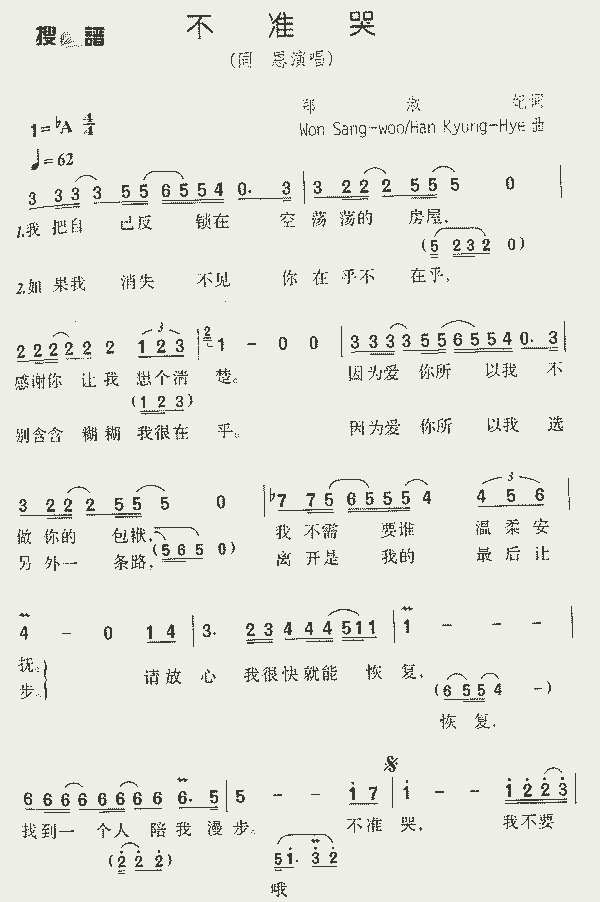 搜 譜
不 准 哭
(周 惠演唱)
郑 淑 妃词
1=♭A 4/4
Won Sang-woo/Han Kyung-Hye 曲
♩=62
3 3 3 3 3 5 5 6 5 5 4 0. 3 3 2 2 2 5 5 5 0
1.我 把自 己反 锁在 空 荡 荡的 房屋,
(5 2 3 2 0)
2.如 果我 消失 不见 你 在 乎不 在乎,
2 2 2 2 2 2 1 2 3 2 1 - 0 0 3 3 3 3 5 5 6 5 5 4 0. 3
感谢你 让我 想个清 楚。 因为爱 你所 以我 不
(1 2 3)
别含含 糊糊 我很在 乎。 因为爱 你所 以我 选
3 2 2 2 5 5 5 0 ♭7 7 5 6 5 5 5 4 4 5 6
做 你的 包袱, 我 不需 要谁 温 柔 安
另 外一 条路, (5 6 5 0) 离 开是 我的 最 后 让
4 - 0 1 4 3. 2 3 4 4 4 5 1 1 1 - - -
抚。
请放 心 我很快就能 恢 复,
步。
(6 5 5 4 -)
恢 复,
6 6 6 6 6 6 6 6 6. 5 5 - - 1 7 1 - - 1 2 2 3
找到一 个人 陪我 漫步。 不准 哭, 我不要
(2 2 2) 5 1. 3 2
哦